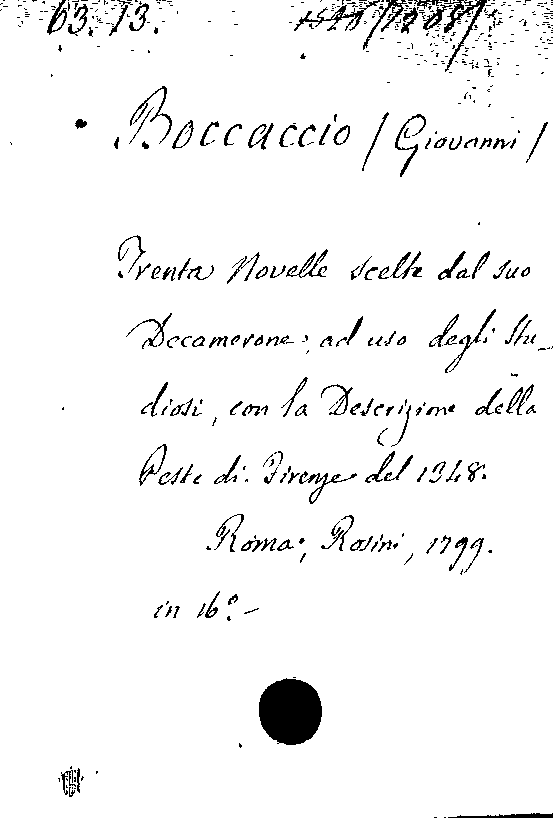 63. 13.
Boccaccio / Giovanni /
Trenta Novelle scelte dal suo
Decamerone, ad uso degli Stu_
diosi, con la Descrizione della
Peste di Firenze del 1348.
Roma, Rosini, 1799.
in 16º. –